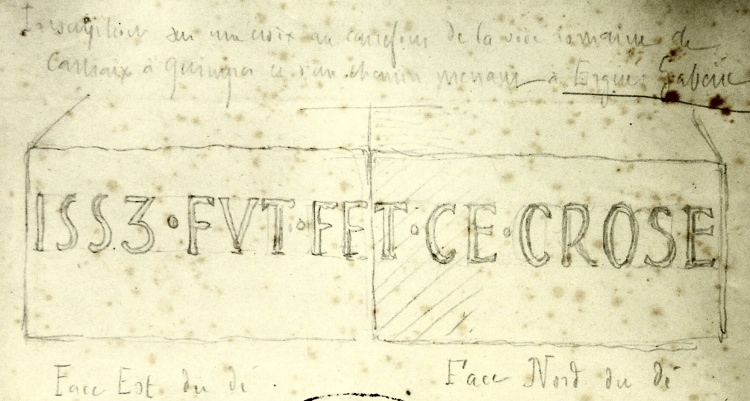 Inscription sur une croix au carrefour de la voie romaine de
Carhaix à Quimper et d'un chemin menant à Ergué-Gabéric
1SS3·FVT·FET·CE·CROSE
Face Est du dé
Face Nord du dé